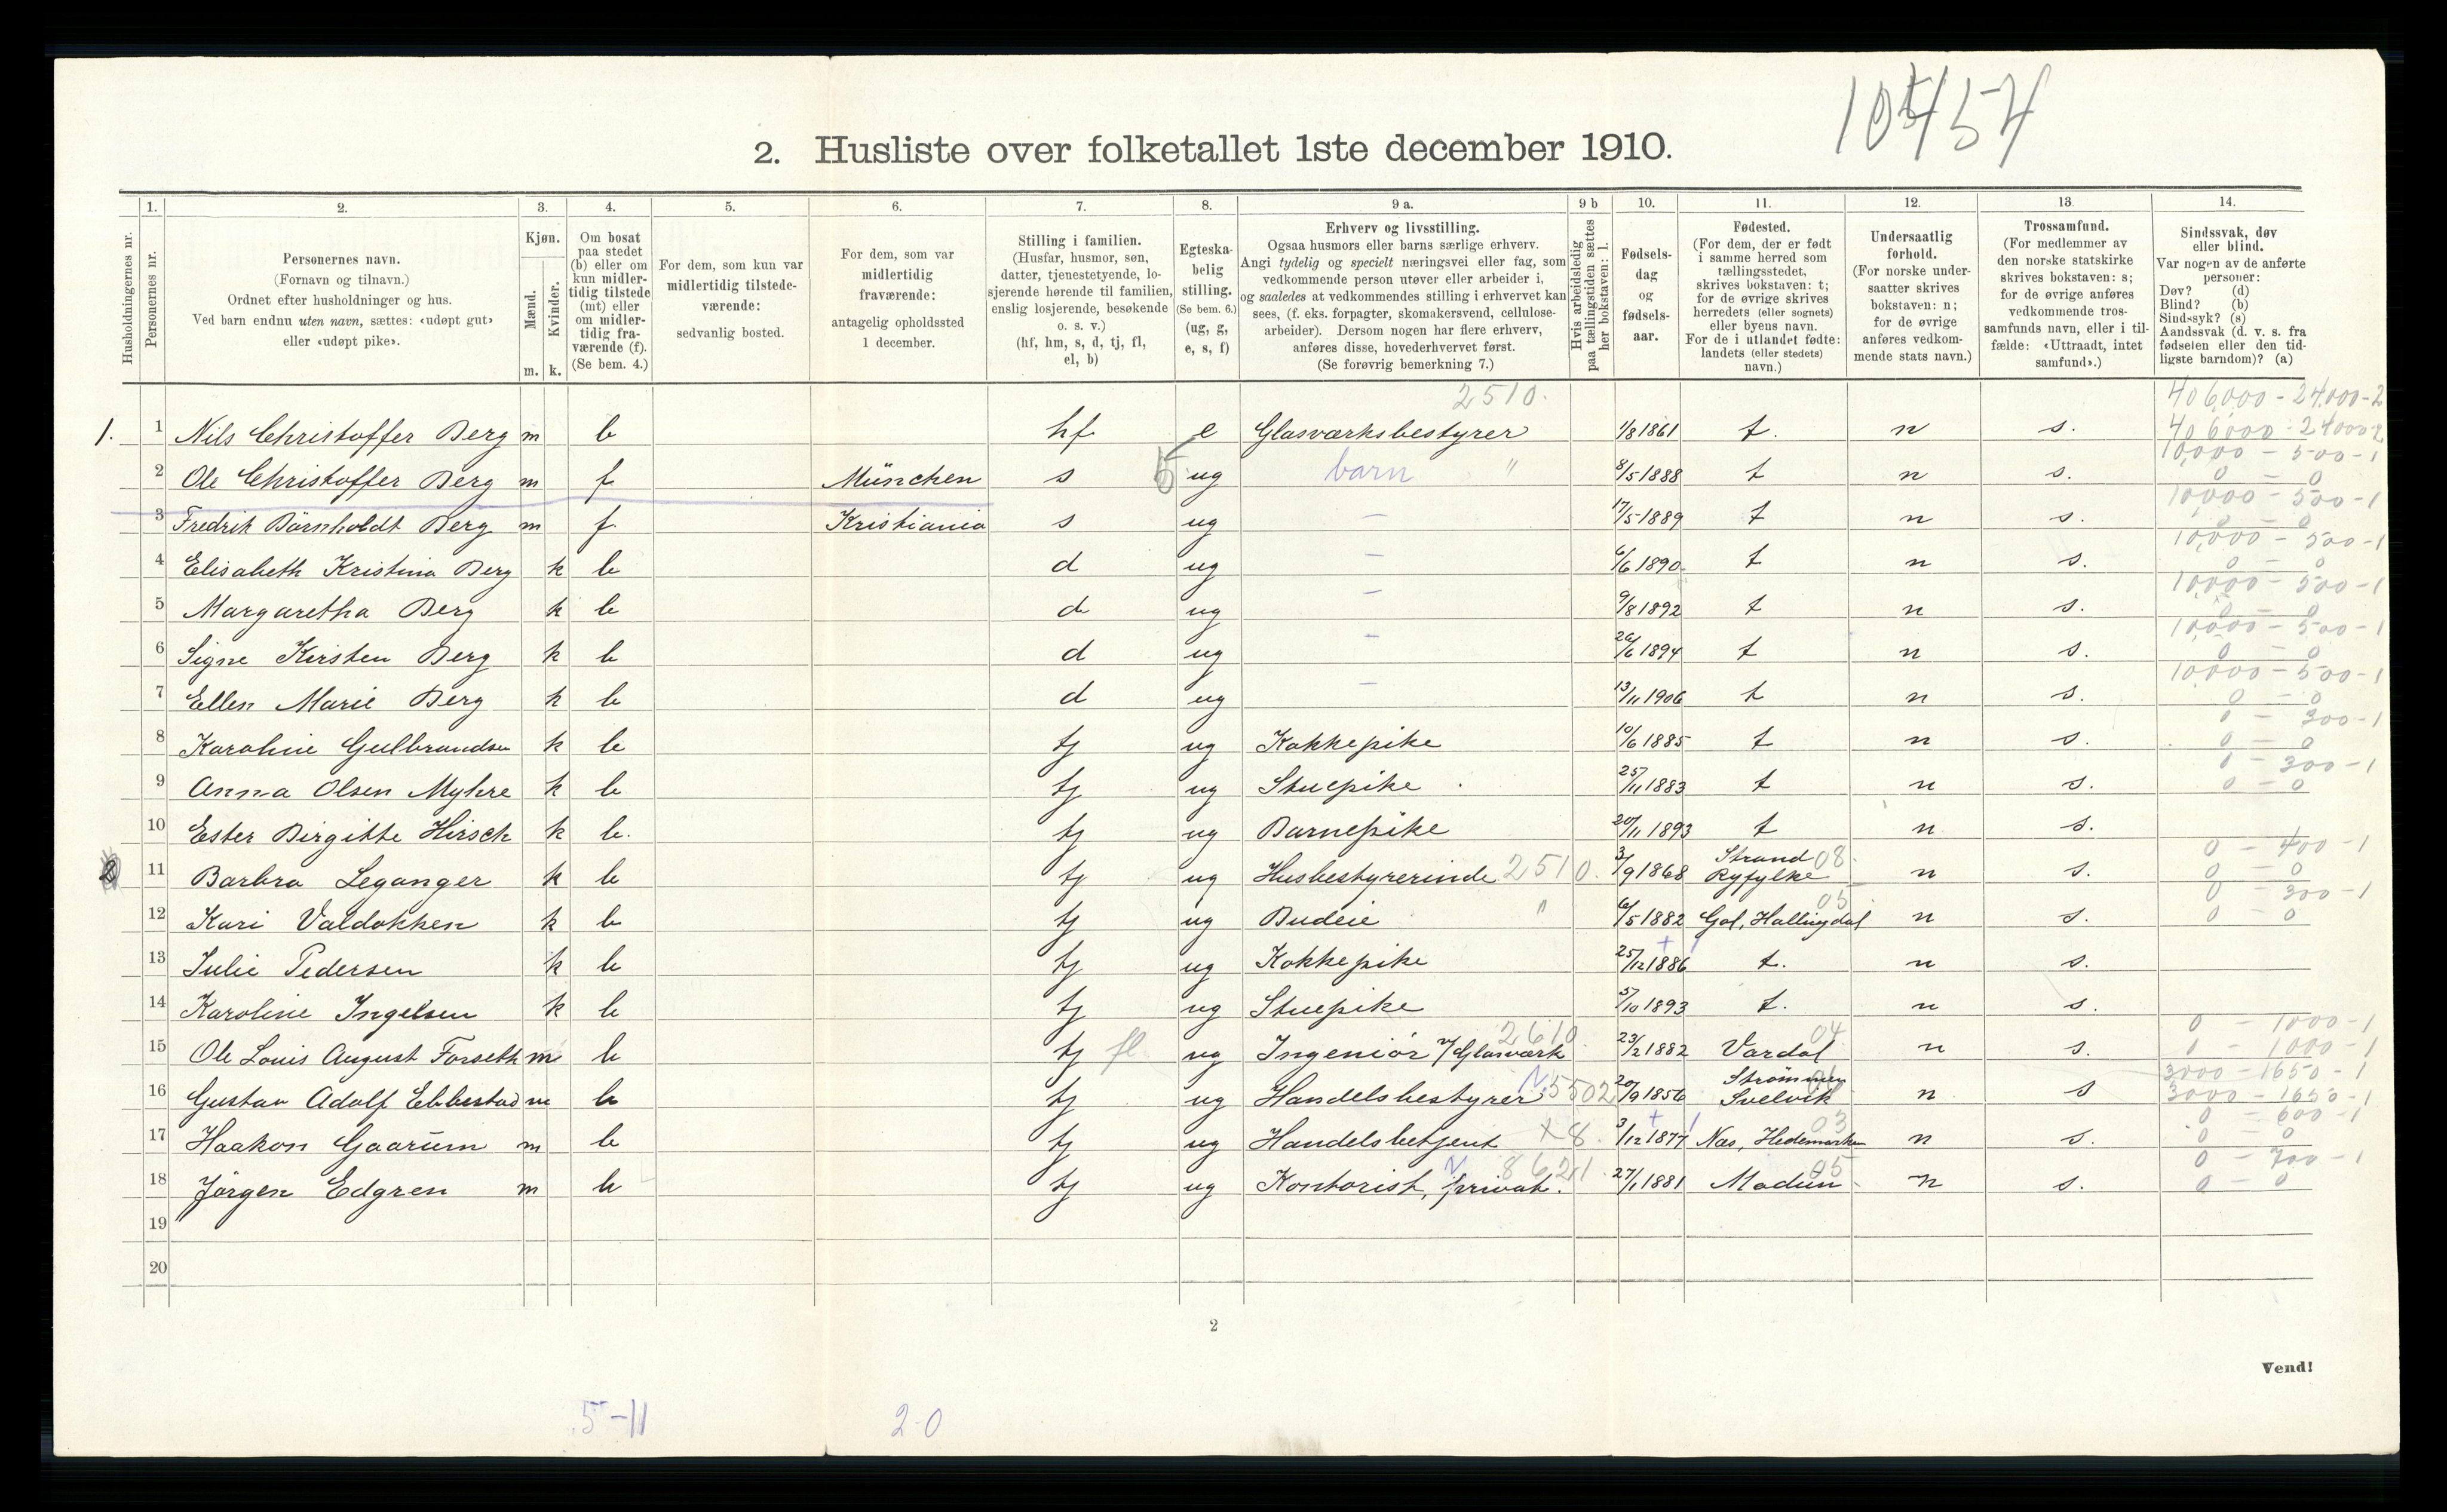 10457
2. Husliste over folketallet 1ste december 1910.
Husholdningernes nr.
1. Personernes nr.
2. Personernes navn.
(Fornavn og tilnavn.)
Ordnet efter husholdninger og hus.
Ved barn endnu uten navn, sættes: «udøpt gut»
eller «udøpt pike».
3. Kjøn.
Mænd. m.
Kvinder. k.
4. Om bosat
paa stedet
(b) eller om
kun midler-
tidig tilstede
(mt) eller
om midler-
tidig fra-
værende (f).
(Se bem. 4.)
5. For dem, som kun var
midlertidig tilstede-
værende:
sedvanlig bosted.
6. For dem, som var
midlertidig
fraværende:
antagelig opholdssted
1 december.
7. Stilling i familien.
(Husfar, husmor, søn,
datter, tjenestetyende, lo-
sjerende hørende til familien,
enslig losjerende, besøkende
o. s. v.)
(hf, hm, s, d, tj, fl,
el, b)
8. Egteska-
belig
stilling.
(Se bem. 6.)
(ug, g,
e, s, f)
9 a. Erhverv og livsstilling.
Ogsaa husmors eller barns særlige erhverv.
Angi tydelig og specielt næringsvei eller fag, som
vedkommende person utøver eller arbeider i,
og saaledes at vedkommendes stilling i erhvervet kan
sees, (f. eks. forpagter, skomakersvend, cellulose-
arbeider). Dersom nogen har flere erhverv,
anføres disse, hovederhvervet først.
(Se forøvrig bemerkning 7.)
9 b Hvis arbeidsledig
paa tællingstiden sættes
her bokstaven: l.
10. Fødsels-
dag
og
fødsels-
aar.
11. Fødested.
(For dem, der er født
i samme herred som
tællingsstedet,
skrives bokstaven: t;
for de øvrige skrives
herredets (eller sognets)
eller byens navn.
For de i utlandet fødte:
landets (eller stedets)
navn.)
12. Undersaatlig
forhold.
(For norske under-
saatter skrives
bokstaven: n;
for de øvrige
anføres vedkom-
mende stats navn.)
13. Trossamfund.
(For medlemmer av
den norske statskirke
skrives bokstaven: s;
for de øvrige anføres
vedkommende tros-
samfunds navn, eller i til-
fælde: «Uttraadt, intet
samfund».)
14. Sindssvak, døv
eller blind.
Var nogen av de anførte
personer:
Døv? (d)
Blind? (b)
Sindssyk? (s)
Aandssvak (d. v. s. fra
fødselen eller den tid-
ligste barndom)? (a)
2510. 406000 - 24000-2
1. 1 Nils Christoffer Berg m b hf e Glasværksbestyrer 1/8 1861 t. n s. 406000 - 24000-2
10000 - 500-1
2 Ole Christoffer Berg m f München s 5 ug barn " 8/5 1888 t n s. 0 - 0
10000 - 500-1
3 Fredrik Börnholdt Berg m f Kristiania s ug - 17/5 1889 t n s. 0 - 0
10,000 - 500-1
4 Elisabeth Kristina Berg k b d ug - 6/6 1890 t n s. 0 - 0
10000 - 500-1
5 Margaretha Berg k b d ug - 9/8 1892 t n s. 0 - 0
10000 - 500-1
6 Signe Kirsten Berg k b d ug - 26/6 1894 t n s. 0 - 0
10000 - 500-1
7 Ellen Marie Berg k b d ug - 13/11 1906 t n s. 0 - 0
0 - 300-1
8 Karoline Gulbrandsen k b tj ug Kokkepike 10/6 1885 t n s. 0 - 0
0 - 300-1
9 Anna Olsen Myhre k b tj ug Stuepike 25/11 1883 t n s. 0 - 0
10 Ester Birgitte Hirsch k b. tj ug Barnepike 20/11 1893 t n s.
0 - 400-1
2 11 Barbra Leganger k b tj ug Husbestyrerinde 2510. 3/9 1868 Strand 08 Ryfylke n s. 0 - 0
05 0 - 300-1
12 Kari Valdokken k b tj ug Budeie " 6/5 1882 Gol, Hallingdal n s. 0 - 0
13 Julie Pedersen k b tj ug Kokkepike 25/12 1886 t. n s.
14 Karoline Ingelsen k b tj ug Stuepike 5/10 1893 t. n s.
2610. 04 0 - 1000-1
15 Ole Louis August Forseth m b tj fl ug Ingeniör v/Glasværk 23/2 1882 Vardal n s. 0 - 1000-1
3000 - 1650-1
16 Gustav Adolf Ebbestad m b tj ug Handelsbestyrer 5502 20/9 1856 Strömmen Svelvik n s 3000 - 1650-1
03 0 - 600-1
17 Haakon Gaarum m b tj ug Handelsbetjent x8. 3/12 1877 Næs, Hedemarken n s. 0 - 0
8621 05 0 - 700-1
18 Jörgen Edgren m b tj ug Kontorist, privat. 27/1 1881 Modum n s. 0 - 0
19
20
2
Vend!
5-11
2-0